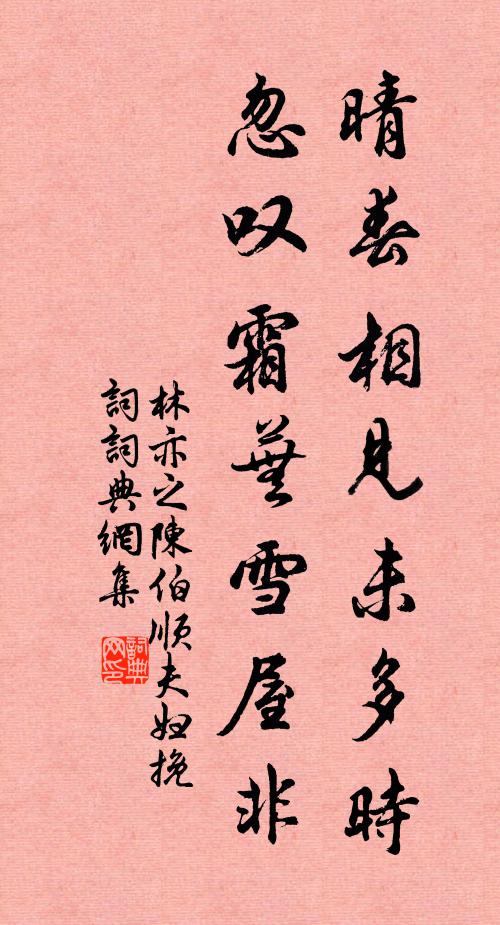 晴春相見未多時
忽叹霜蕪雪屋非
林亦之陳伯順夫妇挽
詞詞典網集
詞典网印